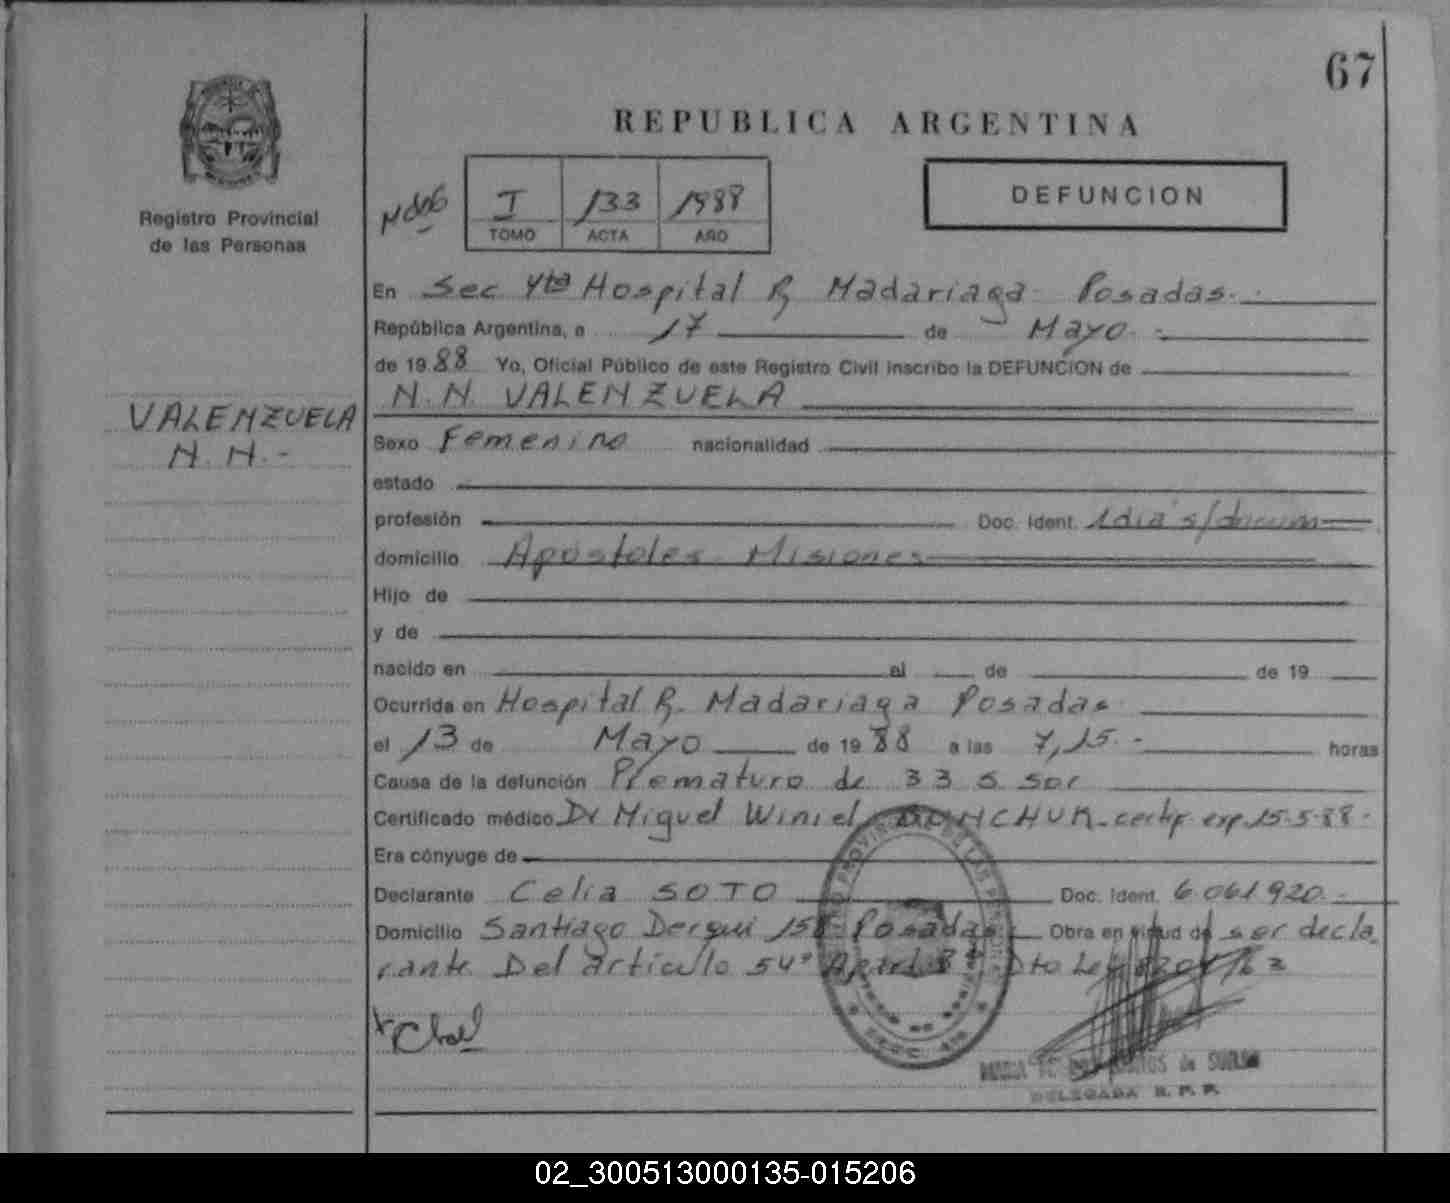 67
REPUBLICA ARGENTINA
DEFUNCION
Registro Provincial
de las Personas
I 133 1988
TOMO ACTA AÑO
En Sec 4ta Hospital R, Madariaga Posadas.
República Argentina, a 17 de Mayo
de 1988 Yo, Oficial Público de este Registro Civil inscribo la DEFUNCION de
N.N. VALENZUELA
VALENZUELA
N. N. -
Sexo Femenino nacionalidad
estado
profesión Doc. Ident. 1 dia s/docum
domicilio Apóstoles Misiones
Hijo de
y de
nacido en el de de 19
Ocurrida en Hospital R. Madariaga Posadas
el 13 de Mayo de 1988 a las 7,15.- horas
Causa de la defunción Prematuro de 33 s
Certificado médico Dr Miguel Winiel certif exp. 15-5-88-
Era cónyuge de
Declarante Celia SOTO Doc. Ident. 6.061.920.-
Domicilio Santiago Derqui Posadas Obra en virtud de ser decla
rante Del artículo 54° Dto Ley
DELEGADA R. P. P.
02_300513000135-015206